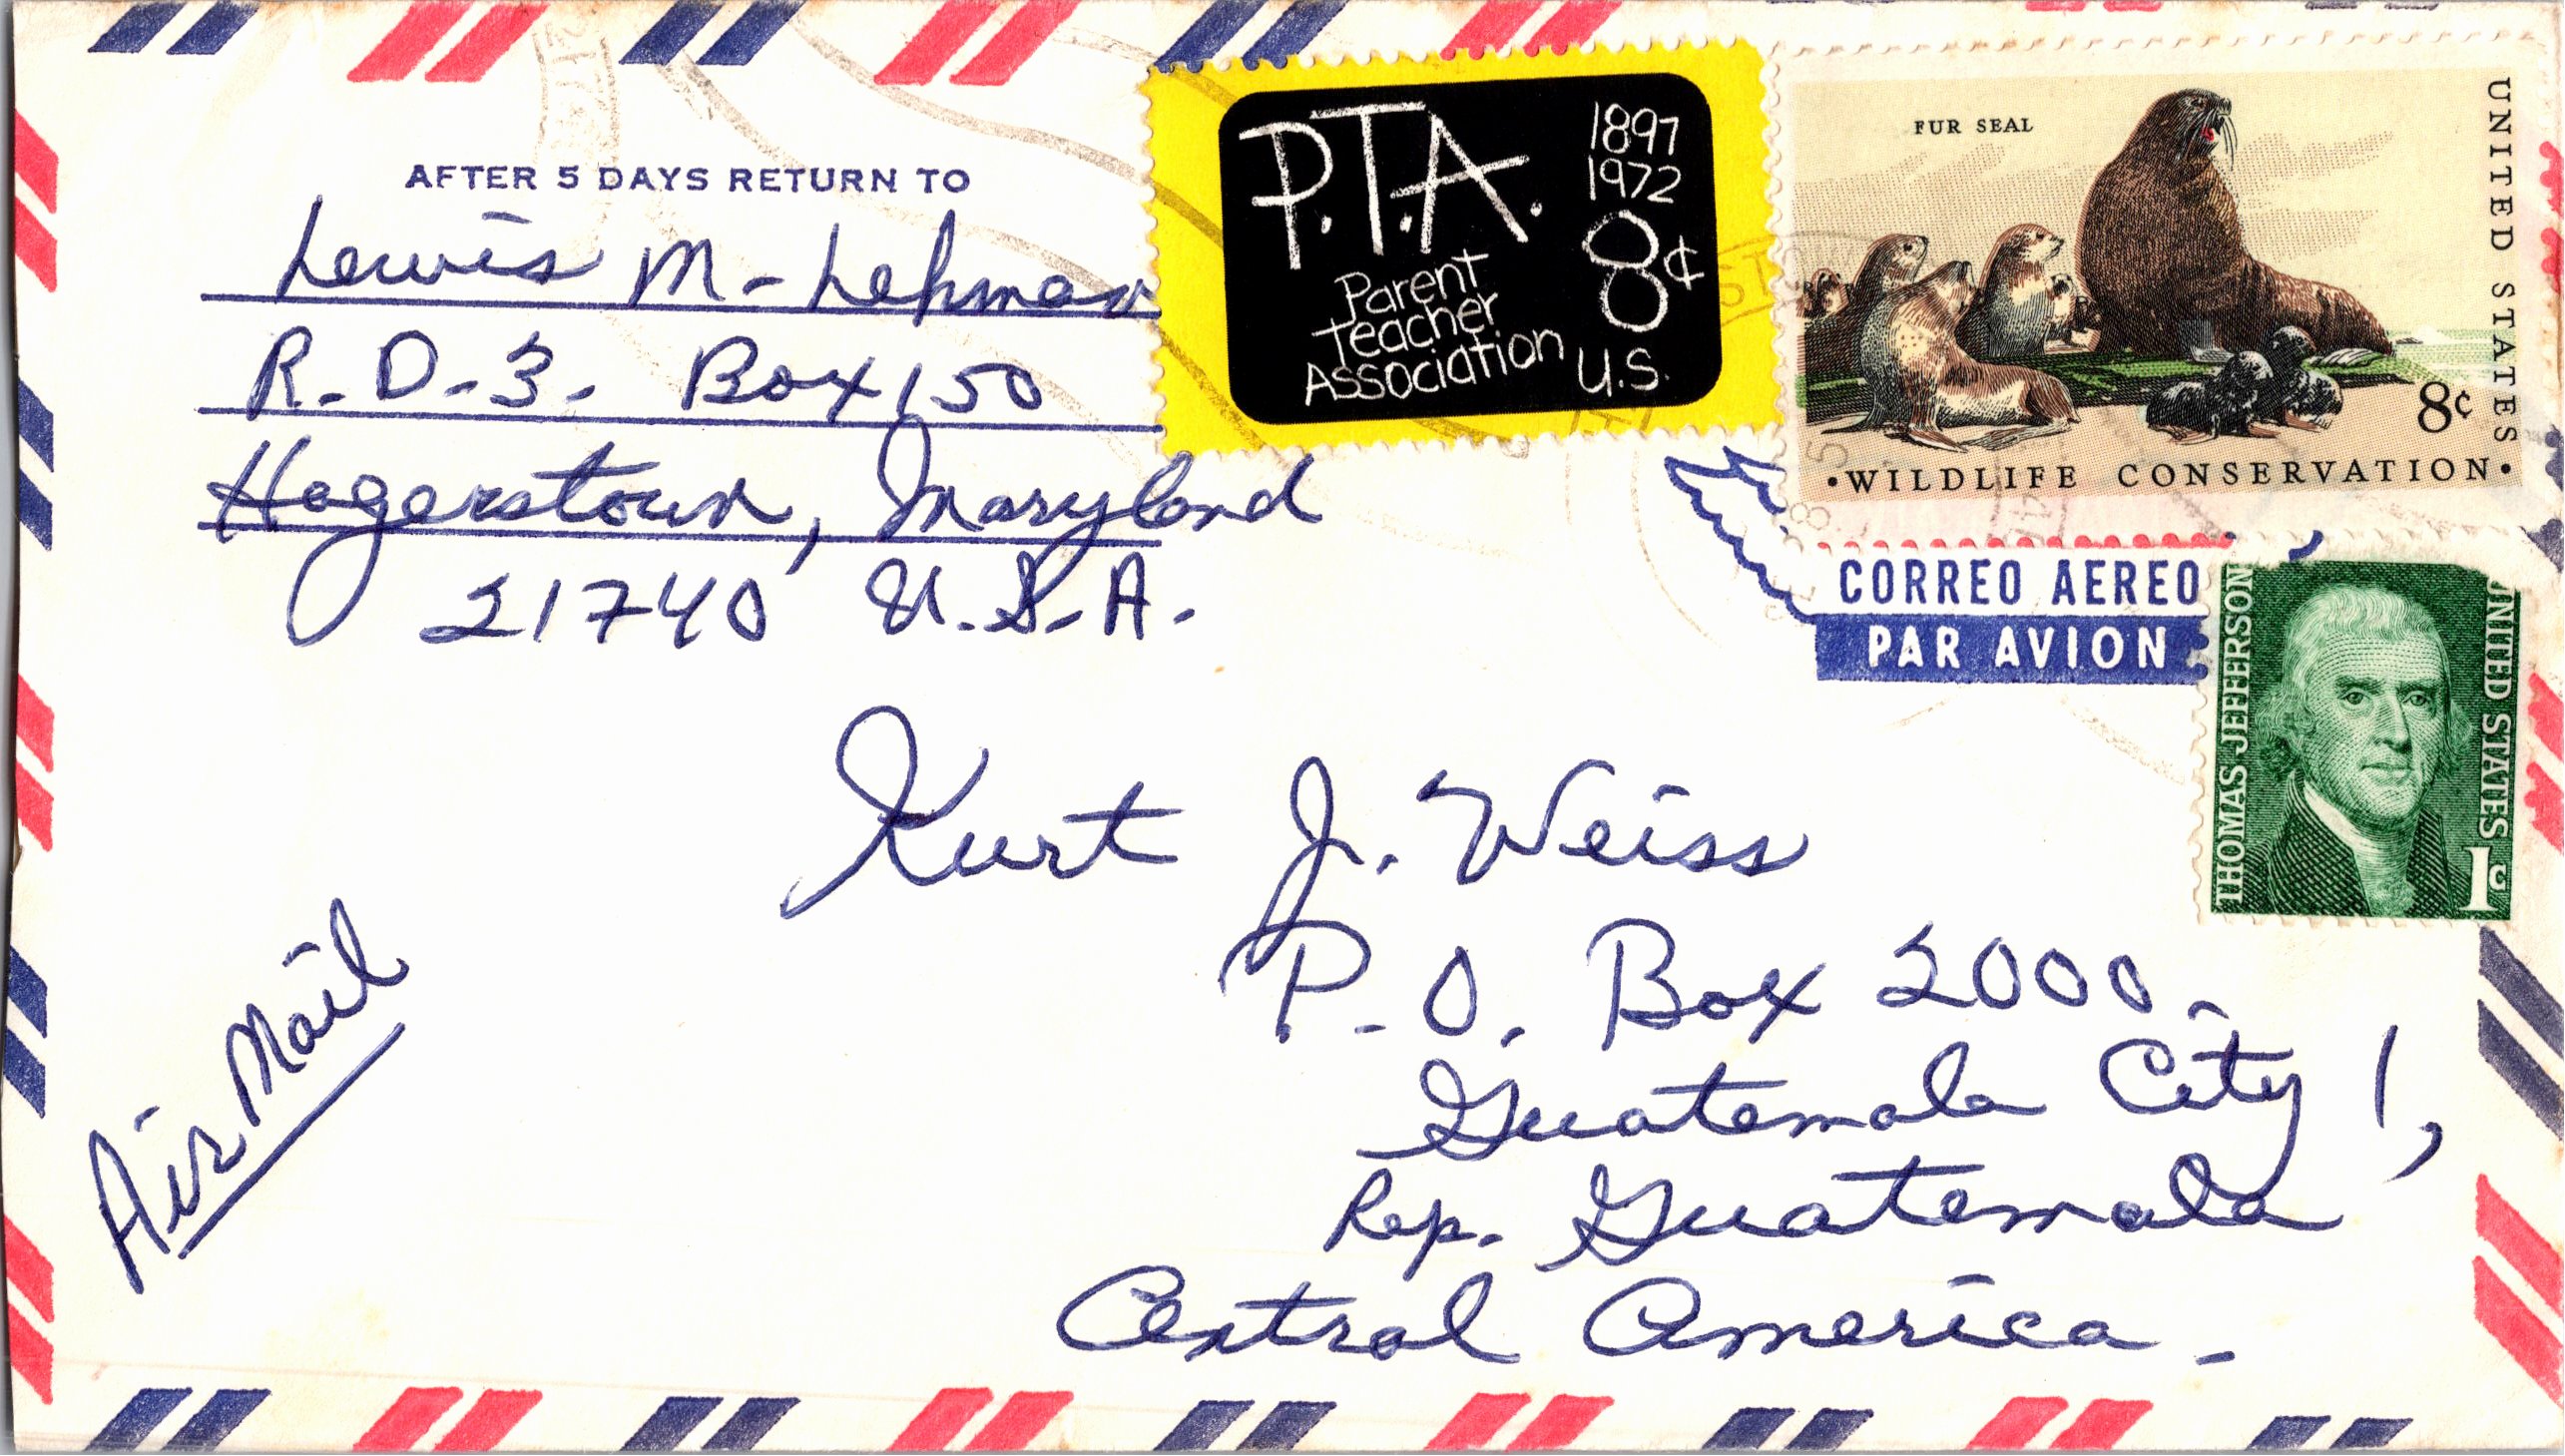 AFTER 5 DAYS RETURN TO
Lewis M- Lehman
R.D-3. Box 150
Hagerstown, Maryland
21740 U.S.A.
P.T.A.
1897
1972
8¢
Parent
Teacher
Association
U.S.
FUR SEAL
UNITED STATES
8¢
•WILDLIFE CONSERVATION•
CORREO AEREO
PAR AVION
THOMAS JEFFERSON
UNITED STATES
1¢
Kurt J. Weiss
P.O. Box 2000-
Guatemala City 1,
Rep. Guatemala
Central America-
Air Mail